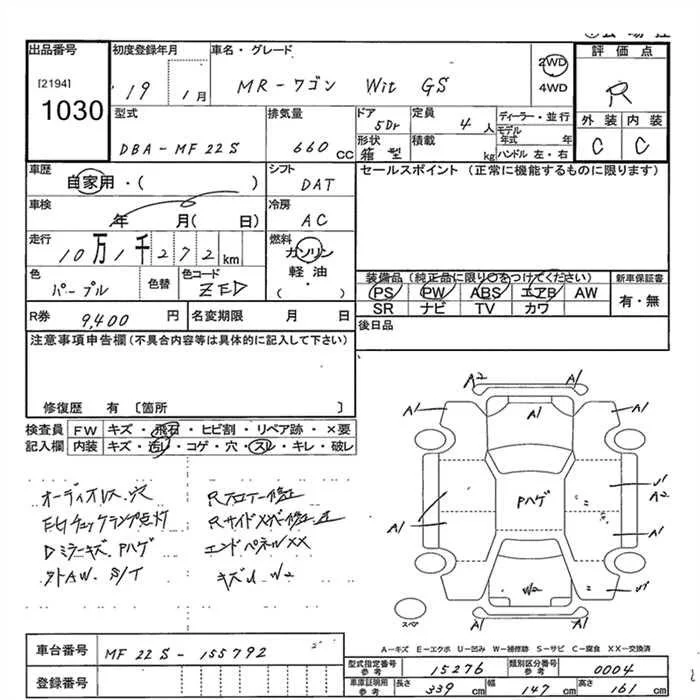 出品番号
[2194]
1030
初度登録年月
19 1月
車名・グレード
MR-ワゴン Wit GS
2WD
4WD
評価点
R
外装 内装
C C
型式
DBA-MF22S
排気量
660 CC
ドア
5Dr
形状
箱型
定員
4 人
積載
kg
ディーラー・並行
モデル年式 年
ハンドル 左・右
車歴
自家用・( )
車検
年 月( 日)
走行
10万1千272 km
シフト
DAT
冷房
AC
燃料
ガソリン
軽油
( )
セールスポイント (正常に機能するものに限ります)
色
パープル
色替
色コード
ZED
装備品(純正品に限り○をつけてください)
PS PW ABS エアB AW
SR ナビ TV カワ
新車保証書
有・無
R券 9,400 円
名変期限 月 日
後日品
注意事項申告欄(不具合内容等は具体的に記入して下さい)
修復歴 有 〔箇所 〕
検査員記入欄
FW キズ・飛石・ヒビ割・リペア跡・×要
内装 キズ・汚レ・コゲ・穴・スレ・キレ・破レ
オーディオレス・穴
E/Gチェックランプ点灯
Dミラーキズ、Pハゲ
外AW. S/T
Rフロアー修正
Rサイドメンバー修正
エンドパネルXX
キズU W2
A2 A1
A1 A1 A1
Pハゲ
A1
U1
A2
A1
W2
U1
A1 A1
スペア
A-キズ E-エクボ U-凹み W-補修跡 S-サビ C-腐食 XX-交換済
車台番号 MF22S-155792
登録番号
型式指定番号参考 15276
類別区分番号参考 0004
車庫証明用参考 長さ 339 cm 幅 147 cm 高さ 161 cm